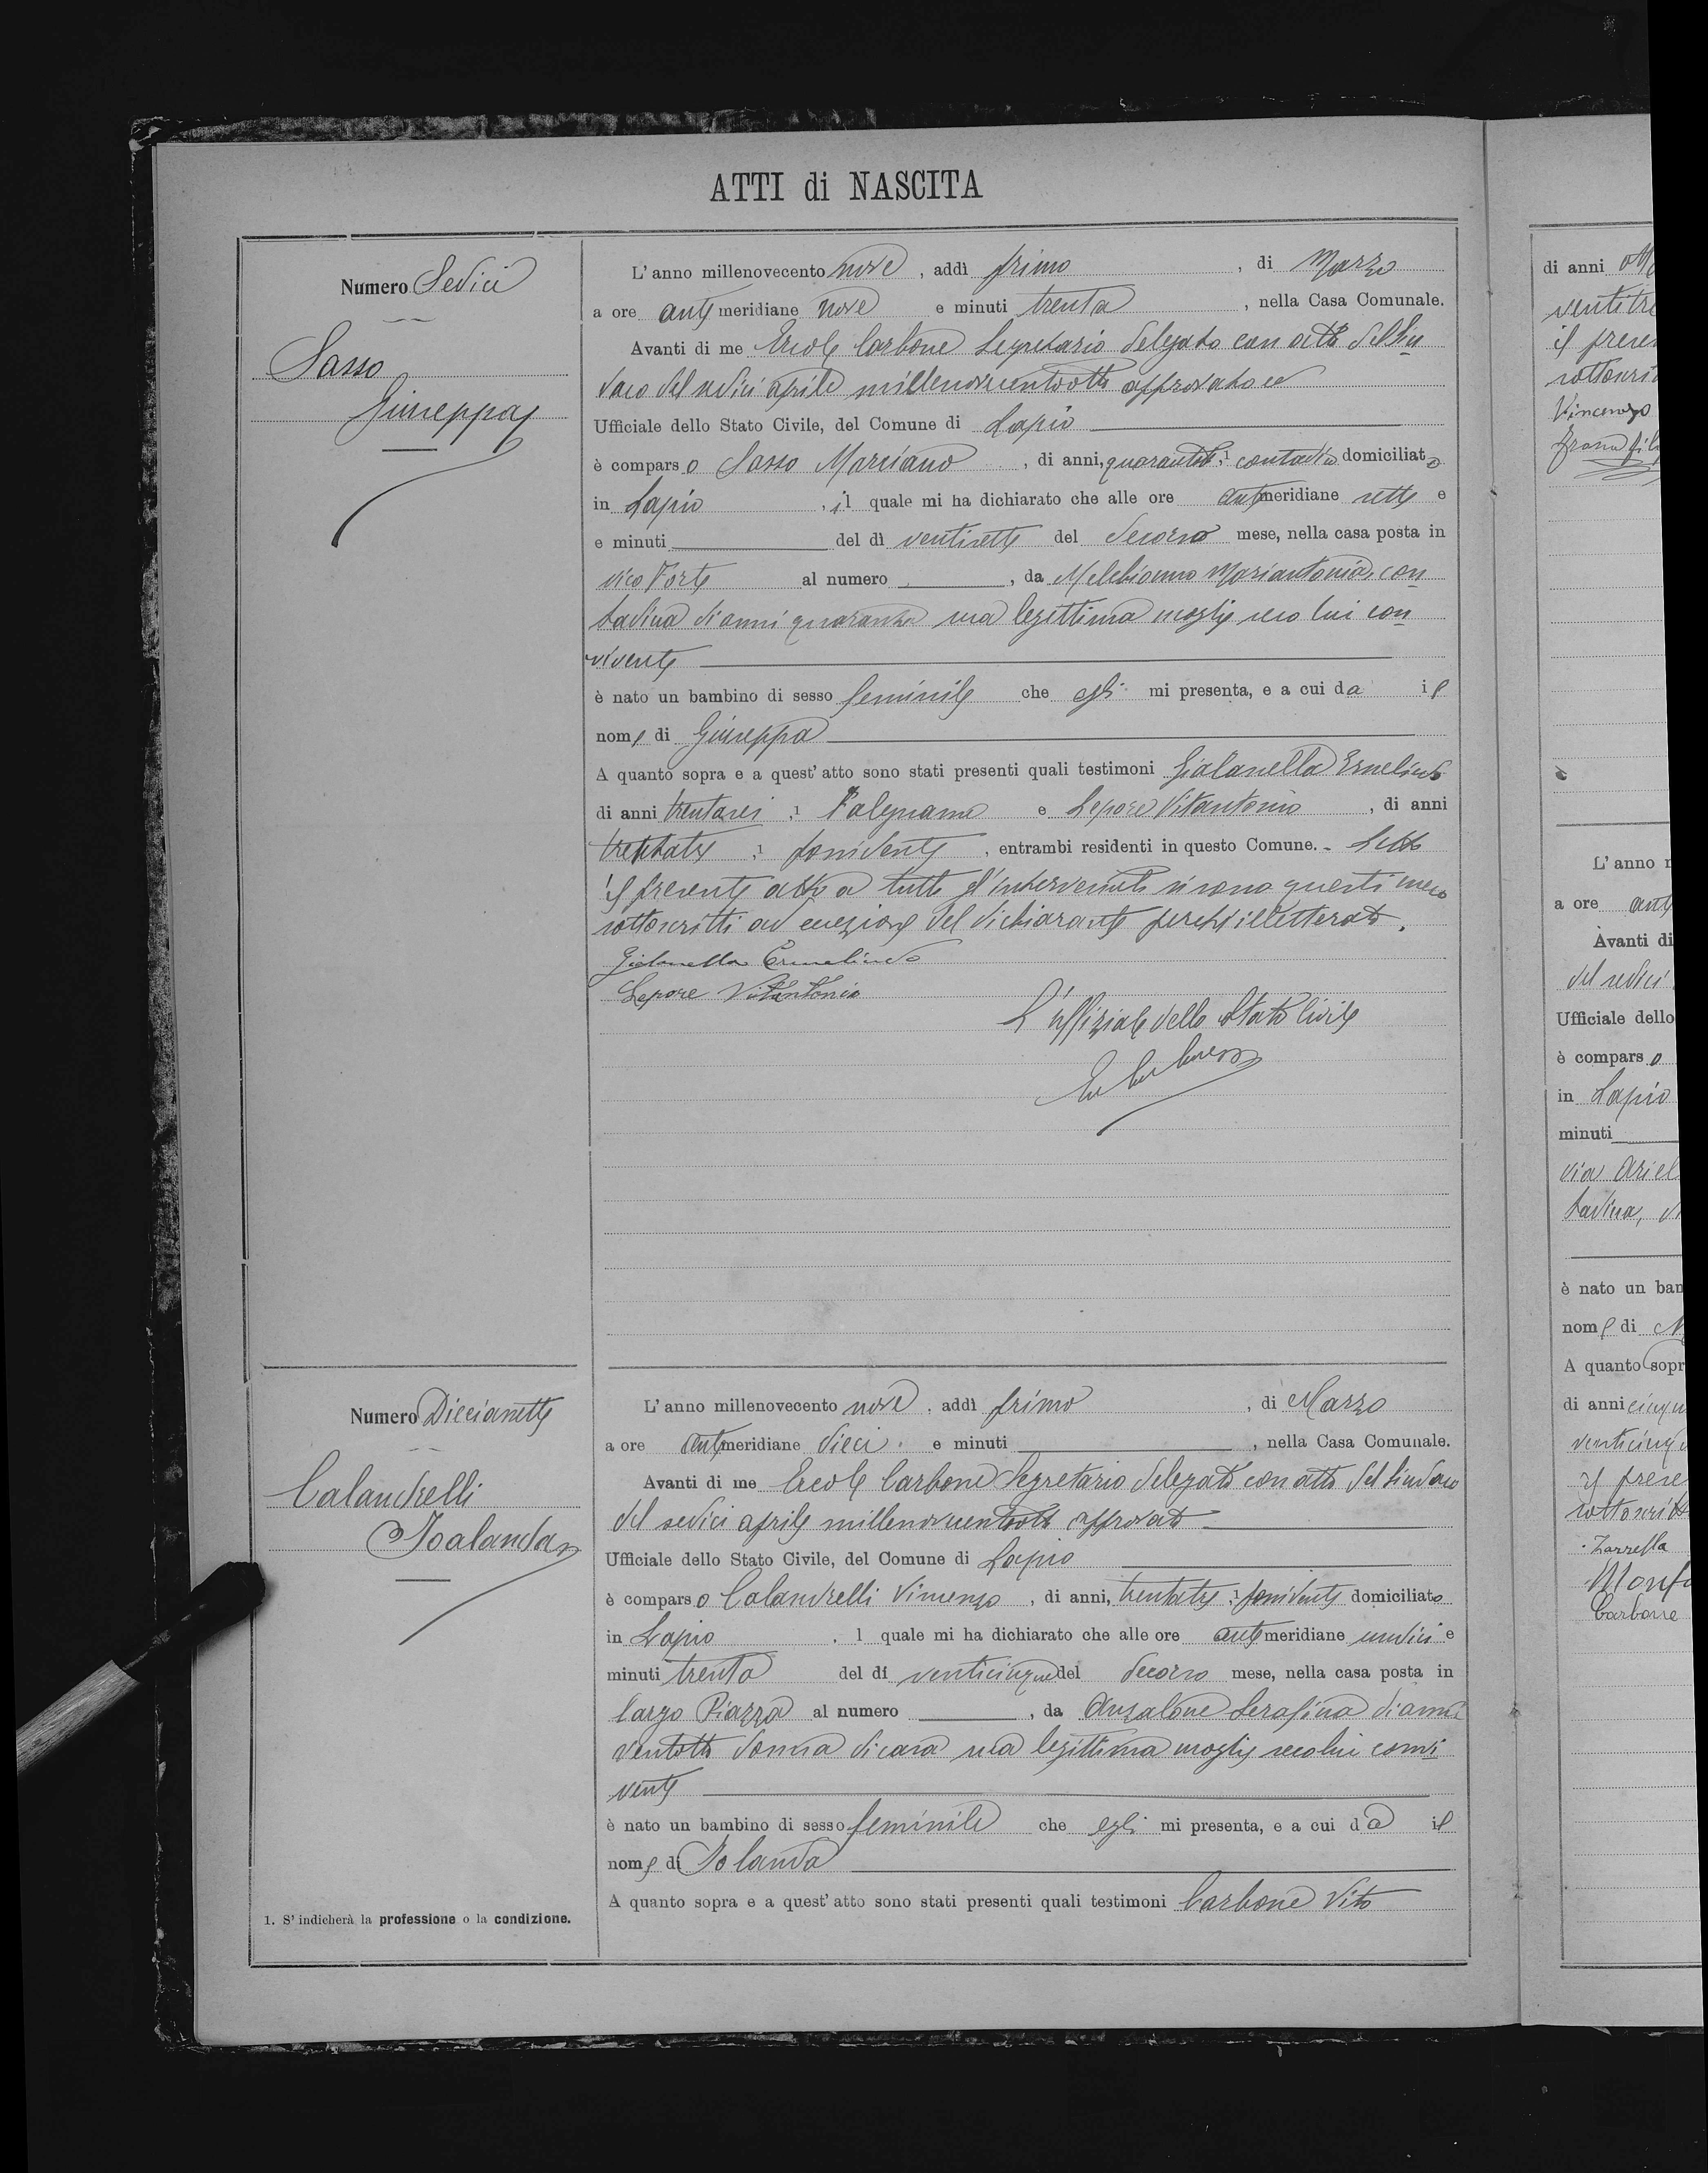 ATTI di NASCITA
Numero Sedici
Sasso
Giuseppa
L'anno millenovecento nove, addì primo, di Marzo
a ore antimeridiane nove e minuti trenta, nella Casa Comunale.
Avanti di me Ercole Carbone Segretario delegato con atto del Sin
daco del sedici aprile millenovecentootto approvato ed
Ufficiale dello Stato Civile, del Comune di Lapio
è comparso Sasso Marciano, di anni, contadino domiciliato
in Lapio, il quale mi ha dichiarato che alle ore antimeridiane sette e
e minuti del dì ventisette del decorso mese, nella casa posta in
vico Forte al numero, da Melchionno Mariantonia, con
tadina di anni quaranta sua legittima moglie seco lui con
vivente
è nato un bambino di sesso feminile che egli mi presenta, e a cui da il
nome di Giuseppa
A quanto sopra e a quest'atto sono stati presenti quali testimoni Gialanella Ermelindo
di anni trentasei, Falegname e Lepore Vitantonio, di anni
trentatre, possidente, entrambi residenti in questo Comune. - Letto
il presente atto a tutti gl'intervenuti si sono questi meco
sottoscritti ad eccezione del dichiarante perché illetterato.
Gialanella Ermelindo
Lepore Vitantonio
L'uffiziale dello Stato Civile
Numero Diciassette
Calandrelli
Joalanda
L'anno millenovecento nove, addì primo, di Marzo
a ore antimeridiane dieci. e minuti, nella Casa Comunale.
Avanti di me Ercole Carbone Segretario delegato con atto del Sindaco
del sedici aprile millenovecentootto approvato
Ufficiale dello Stato Civile, del Comune di Lapio
è comparso Calandrelli Vincenzo, di anni, trentatre, possidente domiciliato
in Lapio, l quale mi ha dichiarato che alle ore antimeridiane undici e
minuti trenta del dì venticinque del decorso mese, nella casa posta in
largo Piazza al numero, da Anzalone Serafina di anni
ventotto donna di casa sua legittima moglie seco lui convi
vente
è nato un bambino di sesso feminile che egli mi presenta, e a cui dà il
nome di Jolanda
A quanto sopra e a quest'atto sono stati presenti quali testimoni Carbone Vito
1. S'indicherà la professione o la condizione.
di anni
ventitre
il presen
sottoscri
Vincenzo
L'anno
a ore anti
Avanti di
del sedici
Ufficiale dello
è comparso
in Lapio
minuti
via Ariel
tadina, di
è nato un bam
nome di
A quanto sopr
di anni cinqu
venticinqu
il prese
sottoscritt
Zarrella
Carbone